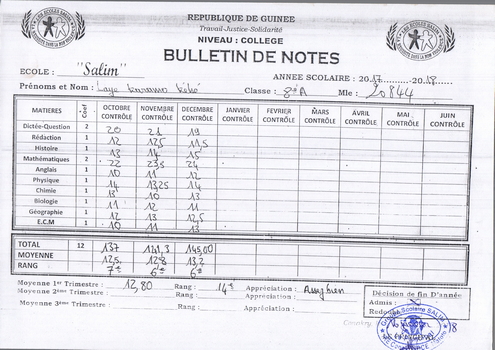 REPUBLIQUE DE GUINEE
Travail-Justice-Solidarité
NIVEAU : COLLEGE
BULLETIN DE NOTES
ECOLE : "Salim" ANNEE SCOLAIRE : 2017 2018
Prénoms et Nom : Laye Classe : 8è A Mle : 20844
MATIERES Coef OCTOBRE CONTRÔLE NOVEMBRE CONTRÔLE DECEMBRE CONTRÔLE JANVIER CONTRÔLE FEVRIER CONTRÔLE MARS CONTRÔLE AVRIL CONTRÔLE MAI CONTRÔLE JUIN CONTRÔLE
Dictée-Question 2 20 21 19
Rédaction 1 12 12,5 11,5
Histoire 1 13 14 15
Mathématiques 2 22 23,5 24
Anglais 1 10 11 12
Physique 1 14 13,25 14
Chimie 1 10 13
Biologie 1 11 12 11
Géographie 1 12 13 12,5
E.C.M 1 10 11 13
TOTAL 12 137 141,3 145,00
MOYENNE 12,5 12,8 13,2
RANG 7è 6è 6è
Moyenne 1er Trimestre : 12,80 Rang : 14è Appréciation : Assez bien
Moyenne 2ème Trimestre : Rang : Appréciation :
Moyenne 3ème Trimestre : Rang : Appréciation :
Décision de fin D'année
Admis :